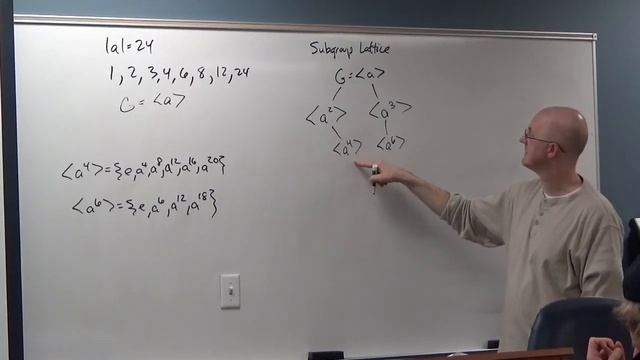 |a|=24
1, 2, 3, 4, 6, 8, 12, 24
G = <a>
<a⁴> = {e, a⁴, a⁸, a¹², a¹⁶, a²⁰}
<a⁶> = {e, a⁶, a¹², a¹⁸}
Subgroup Lattice
G = <a>
<a²> <a³>
<a⁴> <a⁶>